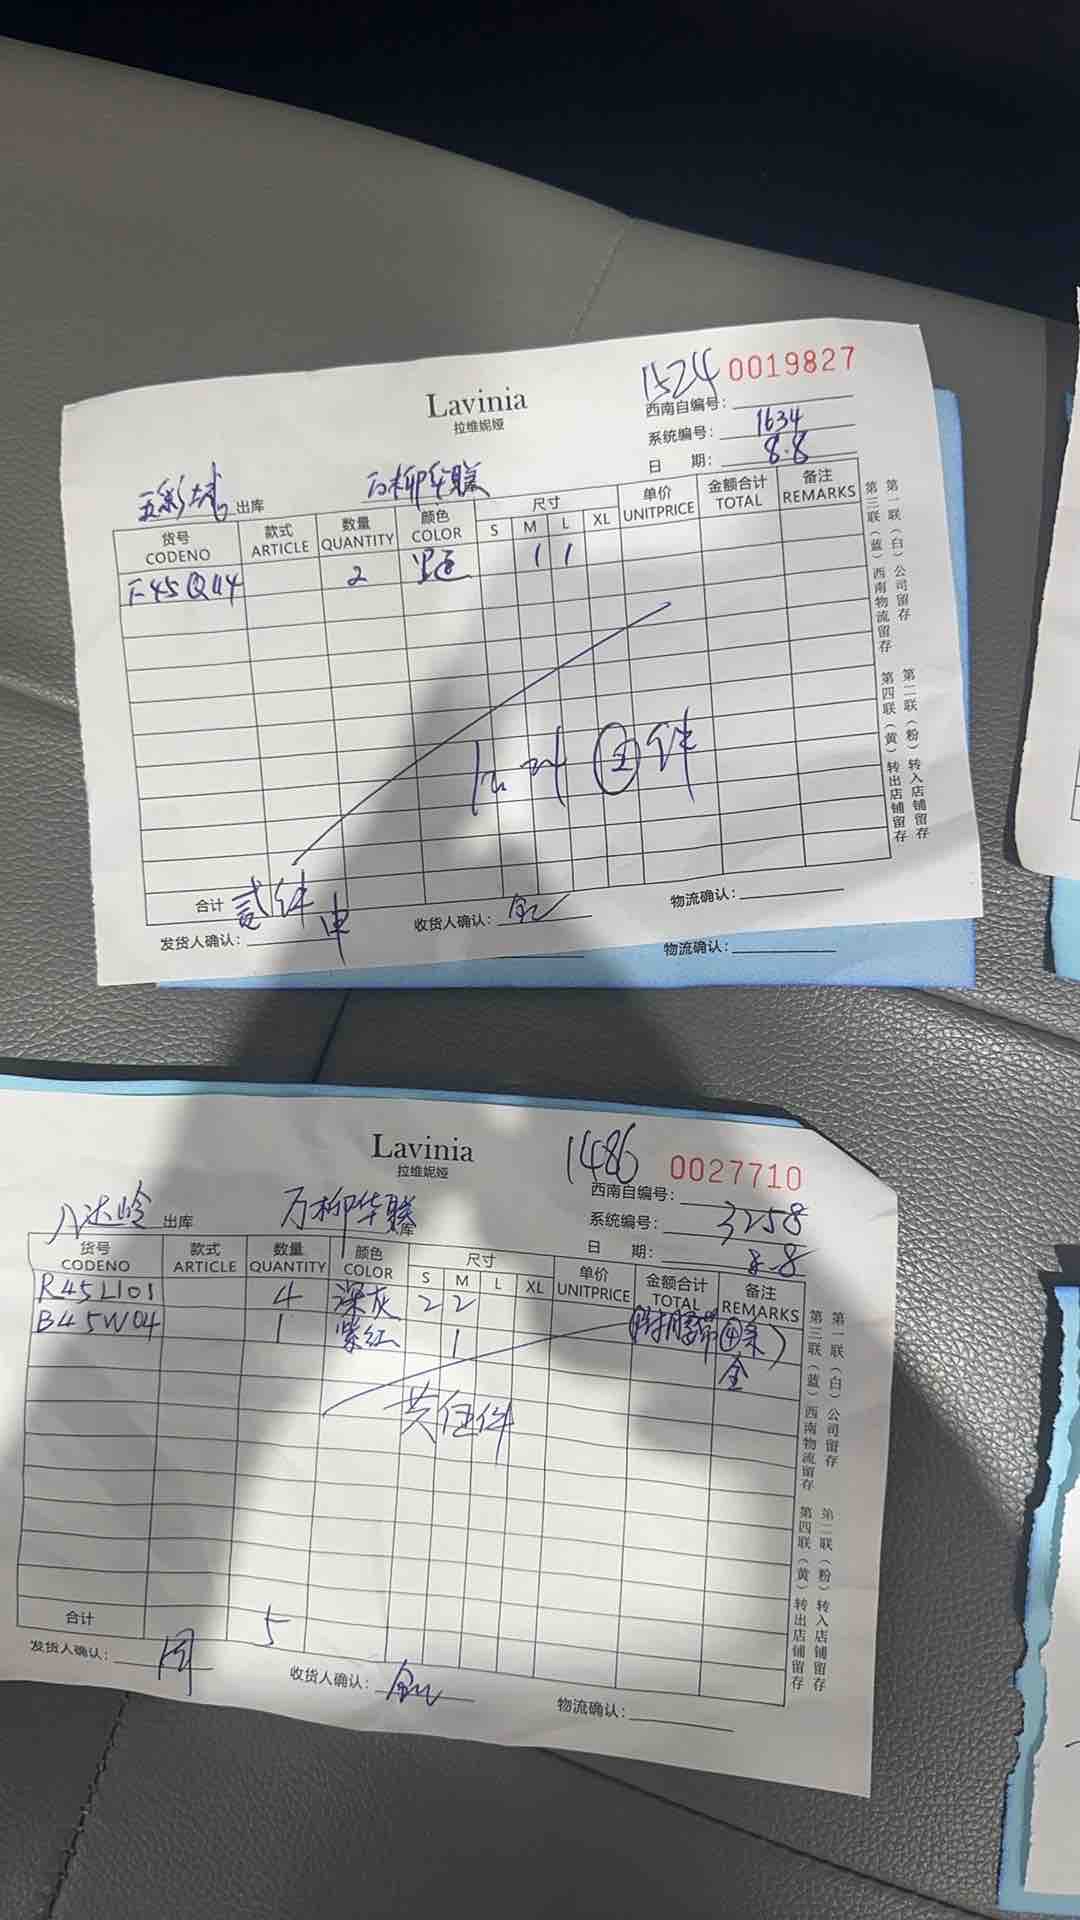 1524 0019827
Lavinia
拉维妮娅
西南自编号：
系统编号： 1634
日 期： 8.8
五彩城 出库 万柳华联
货号 CODENO 款式 ARTICLE 数量 QUANTITY 颜色 COLOR 尺寸 S M L XL 单价 UNITPRICE 金额合计 TOTAL 备注 REMARKS
F45Q414 2 1 1
件
合计 贰件
发货人确认： 收货人确认： 物流确认：
第一联（白）公司留存 第二联（粉）转入店铺留存
第三联（蓝）西南物流留存 第四联（黄）转出店铺留存
物流确认：
1486 0027710
Lavinia
拉维妮娅
西南自编号：
系统编号： 3258
日 期： 8.8
八达岭 出库 万柳华联 库
货号 CODENO 款式 ARTICLE 数量 QUANTITY 颜色 COLOR 尺寸 S M L XL 单价 UNITPRICE 金额合计 TOTAL 备注 REMARKS
R45L101 4 深灰 2 2
B45W04 1 紫红 1 (附腰带④条)
全
共伍件
合计 5
发货人确认： 周 收货人确认： 物流确认：
第一联（白）公司留存 第二联（粉）转入店铺留存
第三联（蓝）西南物流留存 第四联（黄）转出店铺留存